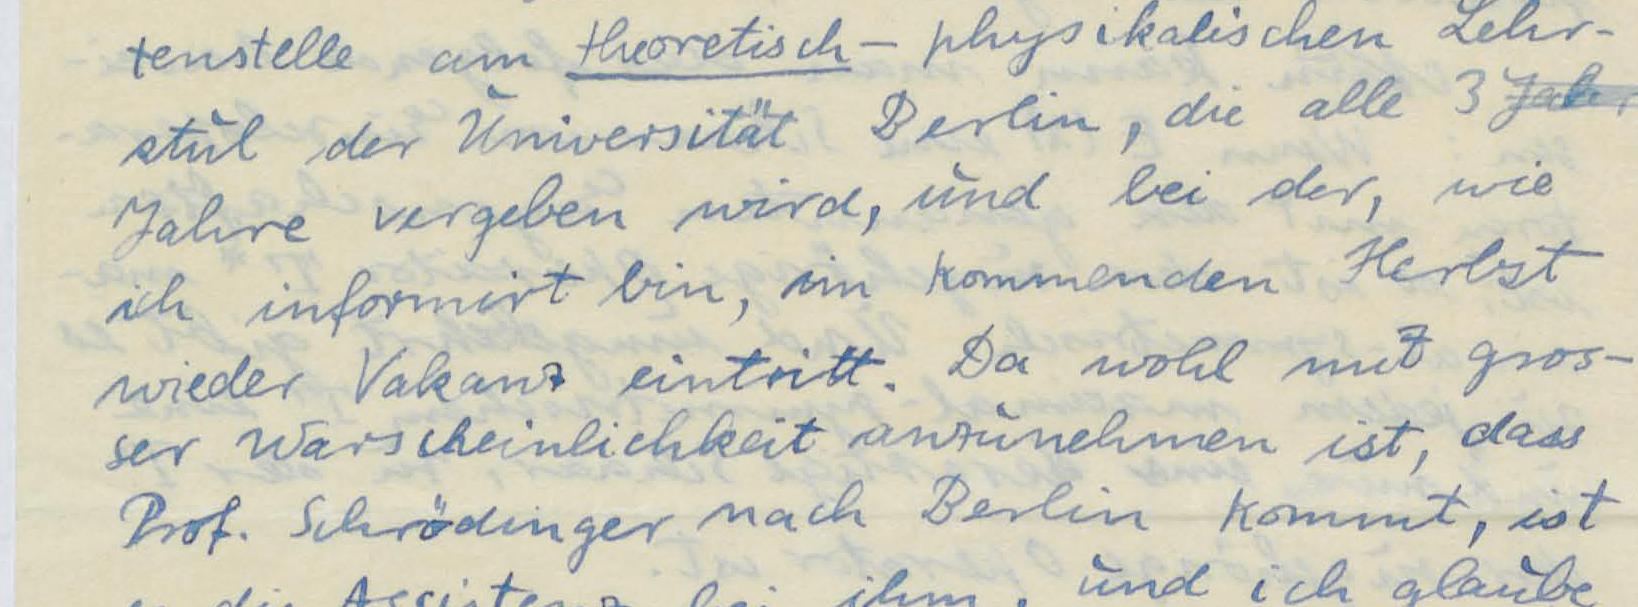 tenstelle am theoretisch- physikalischen Lehr-
stul der Universität Berlin, die alle 3 Jahr
Jahre vergeben wird, und bei der, wie
ich informirt bin, im kommenden Herbst
wieder Vakanz eintritt. Da wohl mit gros-
ser Warscheinlichkeit anzunehmen ist, dass
Prof. Schrödinger nach Berlin kommt, ist
die Assistenz bei ihm, und ich glaube